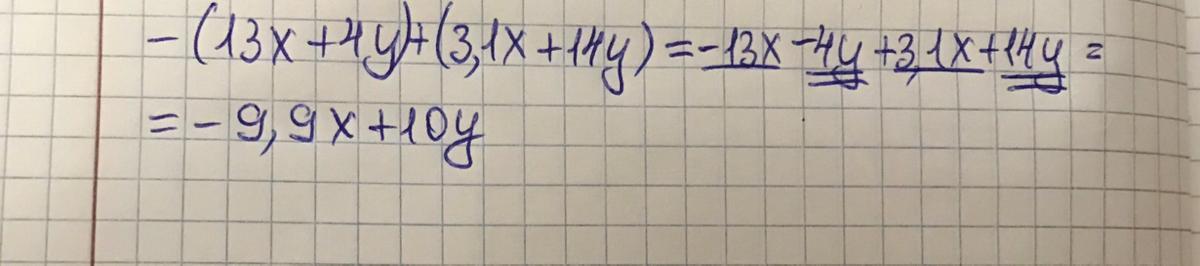 -(13x+4y)+(3,1x+14y)=-13x-4y+3,1x+14y=
=-9,9x+10y